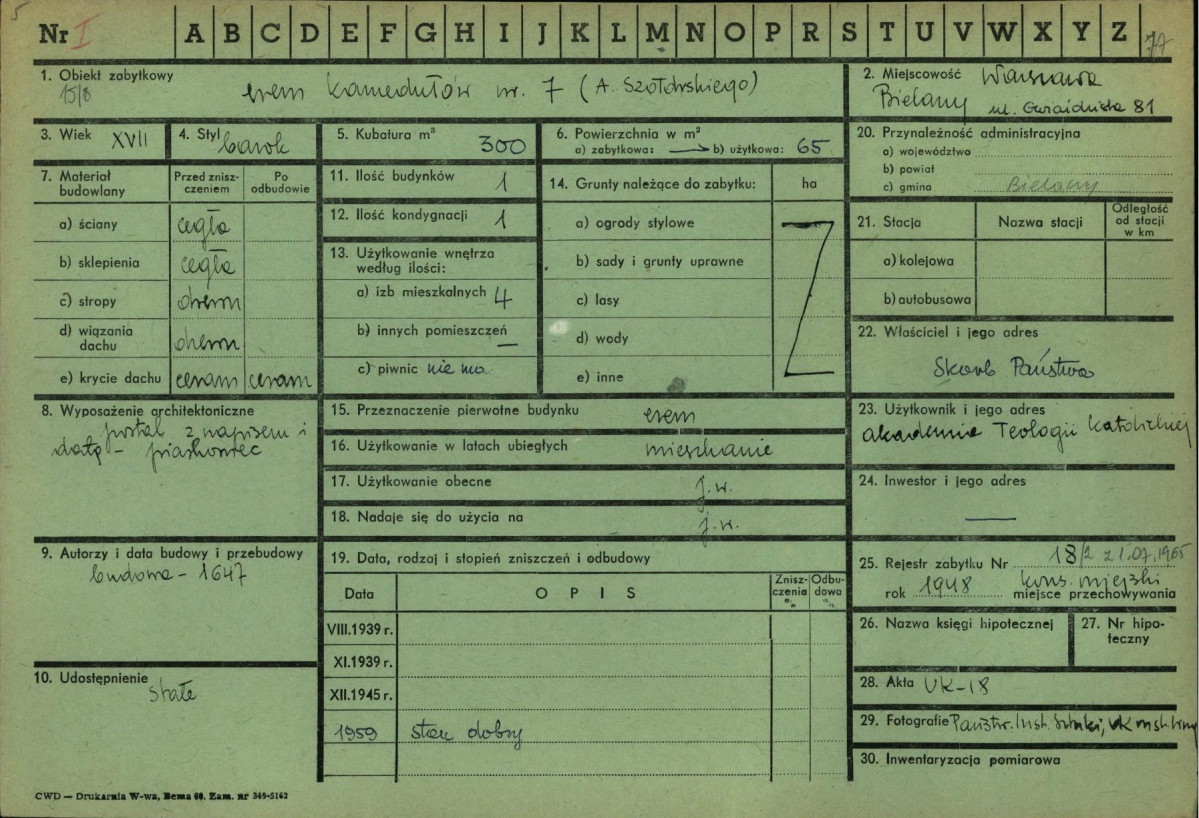 5
Nr I A B C D E F G H I J K L M N O P R S T U V W X Y Z 77
1. Obiekt zabytkowy
15/8
erem Kamedułów nr. 7 (A. Szołdrskiego)
2. Miejscowość Warszawa
Bielany ul. Gwiaździsta 81
3. Wiek XVII
4. Styl barok
5. Kubatura m³
300
6. Powierzchnia w m²
a) zabytkowa: b) użytkowa: 65
20. Przynależność administracyjna
a) województwo
b) powiat
c) gmina Bielany
7. Materiał budowlany
Przed znisz-
czeniem
Po
odbudowie
a) ściany cegła
b) sklepienia cegła
c) stropy drewn
d) wiązania
dachu drewn
e) krycie dachu ceram ceram
11. Ilość budynków 1
12. Ilość kondygnacji 1
13. Użytkowanie wnętrza
według ilości:
a) izb mieszkalnych 4
b) innych pomieszczeń —
c) piwnic nie ma
14. Grunty należące do zabytku: ha
a) ogrody stylowe
b) sady i grunty uprawne
c) lasy
d) wody
e) inne
21. Stacja Nazwa stacji
Odległość
od stacji
w km
a) kolejowa
b) autobusowa
22. Właściciel i jego adres
Skarb Państwa
8. Wyposażenie architektoniczne
portal z napisem i
datą – piaskowiec
15. Przeznaczenie pierwotne budynku erem
16. Użytkowanie w latach ubiegłych mieszkanie
17. Użytkowanie obecne j.w.
18. Nadaje się do użycia na j.w.
23. Użytkownik i jego adres
Akademia Teologii Katolickiej
24. Inwestor i jego adres
—
9. Autorzy i data budowy i przebudowy
budowa – 1647
19. Data, rodzaj i stopień zniszczeń i odbudowy
Data
O P I S
Znisz-
czenia
%
Odbu-
dowa
%
VIII.1939 r.
XI.1939 r.
XII.1945 r.
1959 stan dobry
25. Rejestr zabytku Nr 18/2 z 1.07.1965
rok 1948 kons. miejski
miejsce przechowywania
26. Nazwa księgi hipotecznej
27. Nr hipo-
teczny
10. Udostępnienie
stałe
28. Akta UK-18
29. Fotografie Państw. Inst. Sztuki, UK
30. Inwentaryzacja pomiarowa
CWD — Drukarnia W-wa, Bema 60. Zam. nr 349-5162